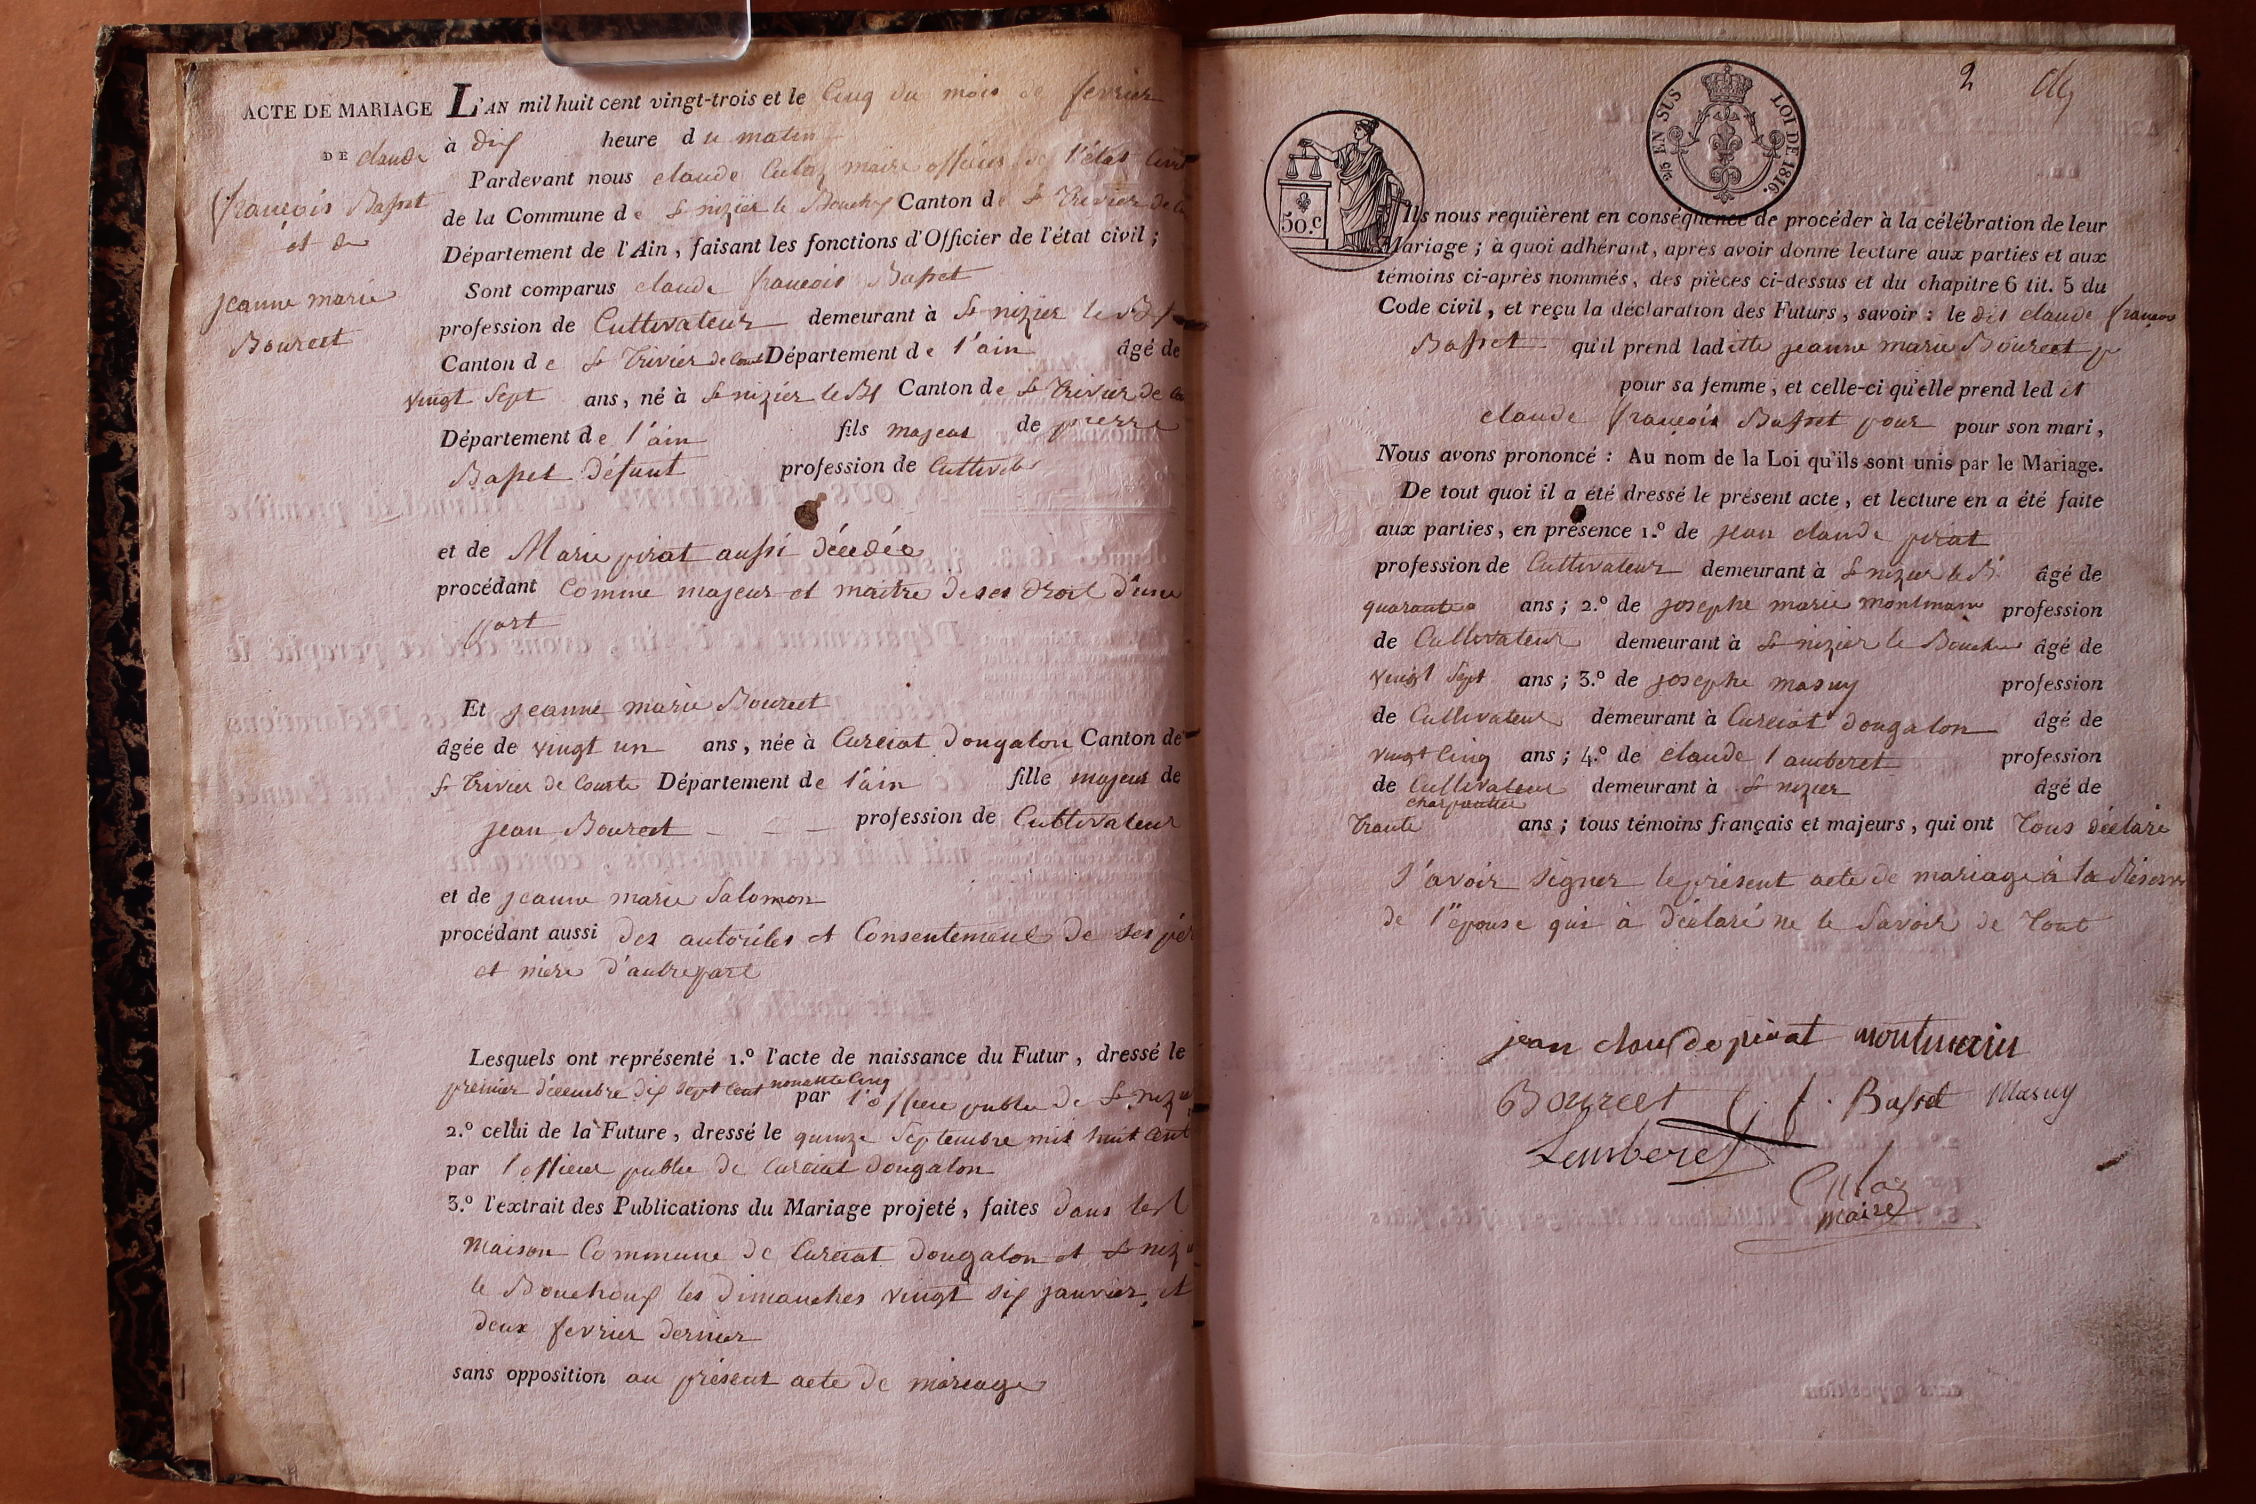 ACTE DE MARIAGE
DE claude
françois Basset
et de
jeanne marie
Bourcet
L'AN mil huit cent vingt-trois et le Cinq du mois de fevrier
à dix heure du matin
Pardevant nous claude maire officier de l'état Civil
de la Commune de St nizier le Bouchoux Canton de St Trivier de
Département de l'Ain, faisant les fonctions d'Officier de l'état civil;
Sont comparus claude francois Basset
profession de Cultivateur demeurant à St nizier le
Canton de St Trivier de Département de l'ain âgé de
vingt sept ans, né à St nizier le Canton de St Trivier de
Département de l'ain fils majeur de pierre
Basset défunt profession de
et de Marie pirat aussi décédée
procédant Comme majeur et maitre de ses droit d'une
part
Et jeanne marie Bourcet
âgée de vingt un ans, née à Curciat dongalon Canton de
St Trivier de Courte Département de l'ain fille majeur de
jean Bourcet profession de Cultivateur
et de jeanne marie Salomon
procédant aussi des Consentement de ses
et mère d'autre part
Lesquels ont représenté 1.º l'acte de naissance du Futur, dressé le
premier décembre dix sept cent nonante Cinq par l'officier public de St
2.º celui de la Future, dressé le quinze Septembre mil huit cent
par l'officier public de Curciat dongalon
3.º l'extrait des Publications du Mariage projeté, faites dans
maison Commune de Curciat dongalon et St
le Bouchoux les Dimanches vingt six janvier, et
deux fevrier dernier
sans opposition au présent acte de mariage
2
3/5 EN SUS LOI DE 1816.
50.c
Ils nous requièrent en conséquence de procéder à la célébration de leur
Mariage; à quoi adhérant, après avoir donné lecture aux parties et aux
témoins ci-après nommés, des pièces ci-dessus et du chapitre 6 tit. 5 du
Code civil, et reçu la déclaration des Futurs, savoir: le dit claude françois
Basset qu'il prend laditte jeanne marie Bourcet
pour sa femme, et celle-ci qu'elle prend led it
claude françois Basset pour pour son mari,
Nous avons prononcé: Au nom de la Loi qu'ils sont unis par le Mariage.
De tout quoi il a été dressé le présent acte, et lecture en a été faite
aux parties, en présence 1.º de jean claude pirat
profession de Cultivateur demeurant à St nizier le B âgé de
quarante ans; 2.º de josephe marie profession
de Cultivateur demeurant à St nizier le âgé de
vingt sept ans; 3.º de josephe masuy profession
de Cultivateur demeurant à Curciat dongalon âgé de
vingt Cinq ans; 4.º de claude Lamberet profession
de Cultivateur demeurant à St nizier âgé de
charpentier
Trante ans; tous témoins français et majeurs, qui ont Tous déclaré
s'avoir signer le présent acte de mariage à la Réserve
de l'épouse qui à déclaré ne le Savoir de Tout
jean claude pirat montmain
Bourcet C. f. Basset Masuy
Lamberet
maire